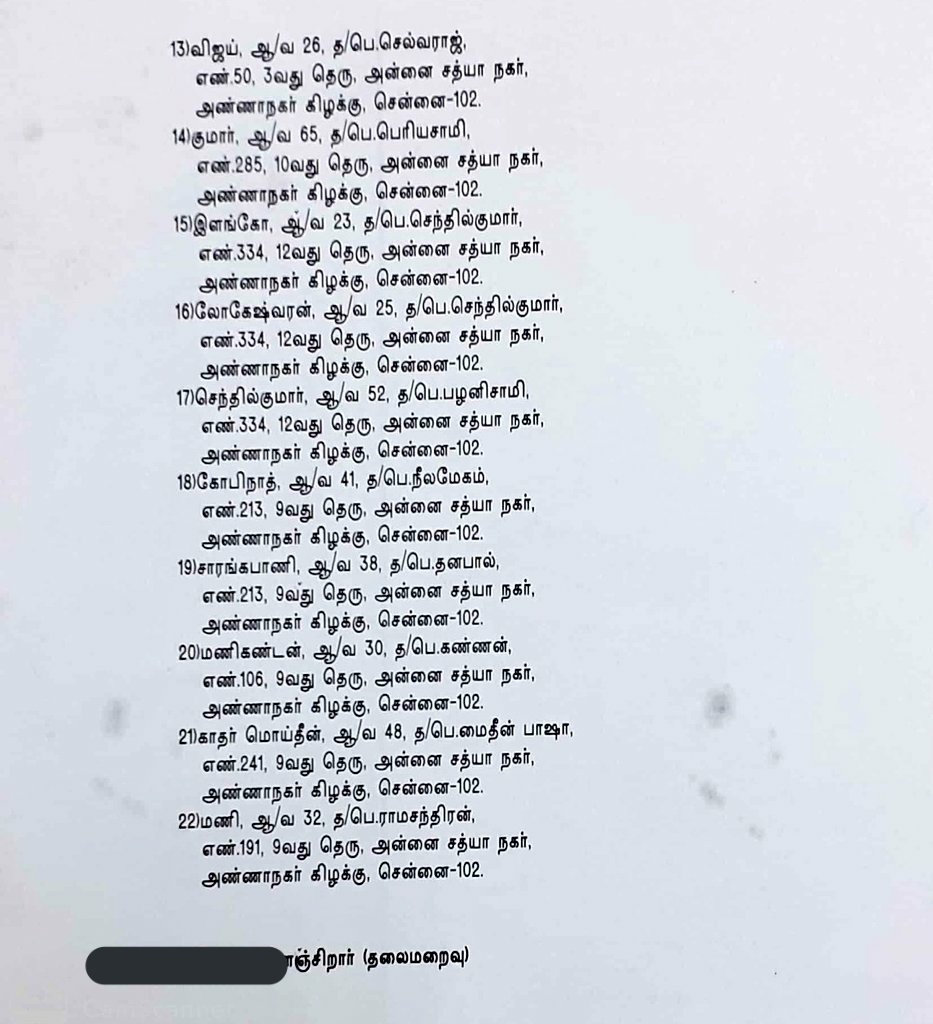 13)விஜய், ஆ/வ 26, த/பெ.செல்வராஜ்,
எண்.50, 3வது தெரு, அன்னை சத்யா நகர்,
அண்ணாநகர் கிழக்கு, சென்னை-102.
14)குமார், ஆ/வ 65, த/பெ.பெரியசாமி,
எண்.285, 10வது தெரு, அன்னை சத்யா நகர்,
அண்ணாநகர் கிழக்கு, சென்னை-102.
15)இளங்கோ, ஆ/வ 23, த/பெ.செந்தில்குமார்,
எண்.334, 12வது தெரு, அன்னை சத்யா நகர்,
அண்ணாநகர் கிழக்கு, சென்னை-102.
16)லோகேஷ்வரன், ஆ/வ 25, த/பெ.செந்தில்குமார்,
எண்.334, 12வது தெரு, அன்னை சத்யா நகர்,
அண்ணாநகர் கிழக்கு, சென்னை-102.
17)செந்தில்குமார், ஆ/வ 52, த/பெ.பழனிசாமி,
எண்.334, 12வது தெரு, அன்னை சத்யா நகர்,
அண்ணாநகர் கிழக்கு, சென்னை-102.
18)கோபிநாத், ஆ/வ 41, த/பெ.நீலமேகம்,
எண்.213, 9வது தெரு, அன்னை சத்யா நகர்,
அண்ணாநகர் கிழக்கு, சென்னை-102.
19)சாரங்கபாணி, ஆ/வ 38, த/பெ.தனபால்,
எண்.213, 9வது தெரு, அன்னை சத்யா நகர்,
அண்ணாநகர் கிழக்கு, சென்னை-102.
20)மணிகண்டன், ஆ/வ 30, த/பெ.கண்ணன்,
எண்.106, 9வது தெரு, அன்னை சத்யா நகர்,
அண்ணாநகர் கிழக்கு, சென்னை-102.
21)காதர் மொய்தீன், ஆ/வ 48, த/பெ.மைதீன் பாஷா,
எண்.241, 9வது தெரு, அன்னை சத்யா நகர்,
அண்ணாநகர் கிழக்கு, சென்னை-102.
22)மணி, ஆ/வ 32, த/பெ.ராமசந்திரன்,
எண்.191, 9வது தெரு, அன்னை சத்யா நகர்,
அண்ணாநகர் கிழக்கு, சென்னை-102.
(தலைமறைவு)